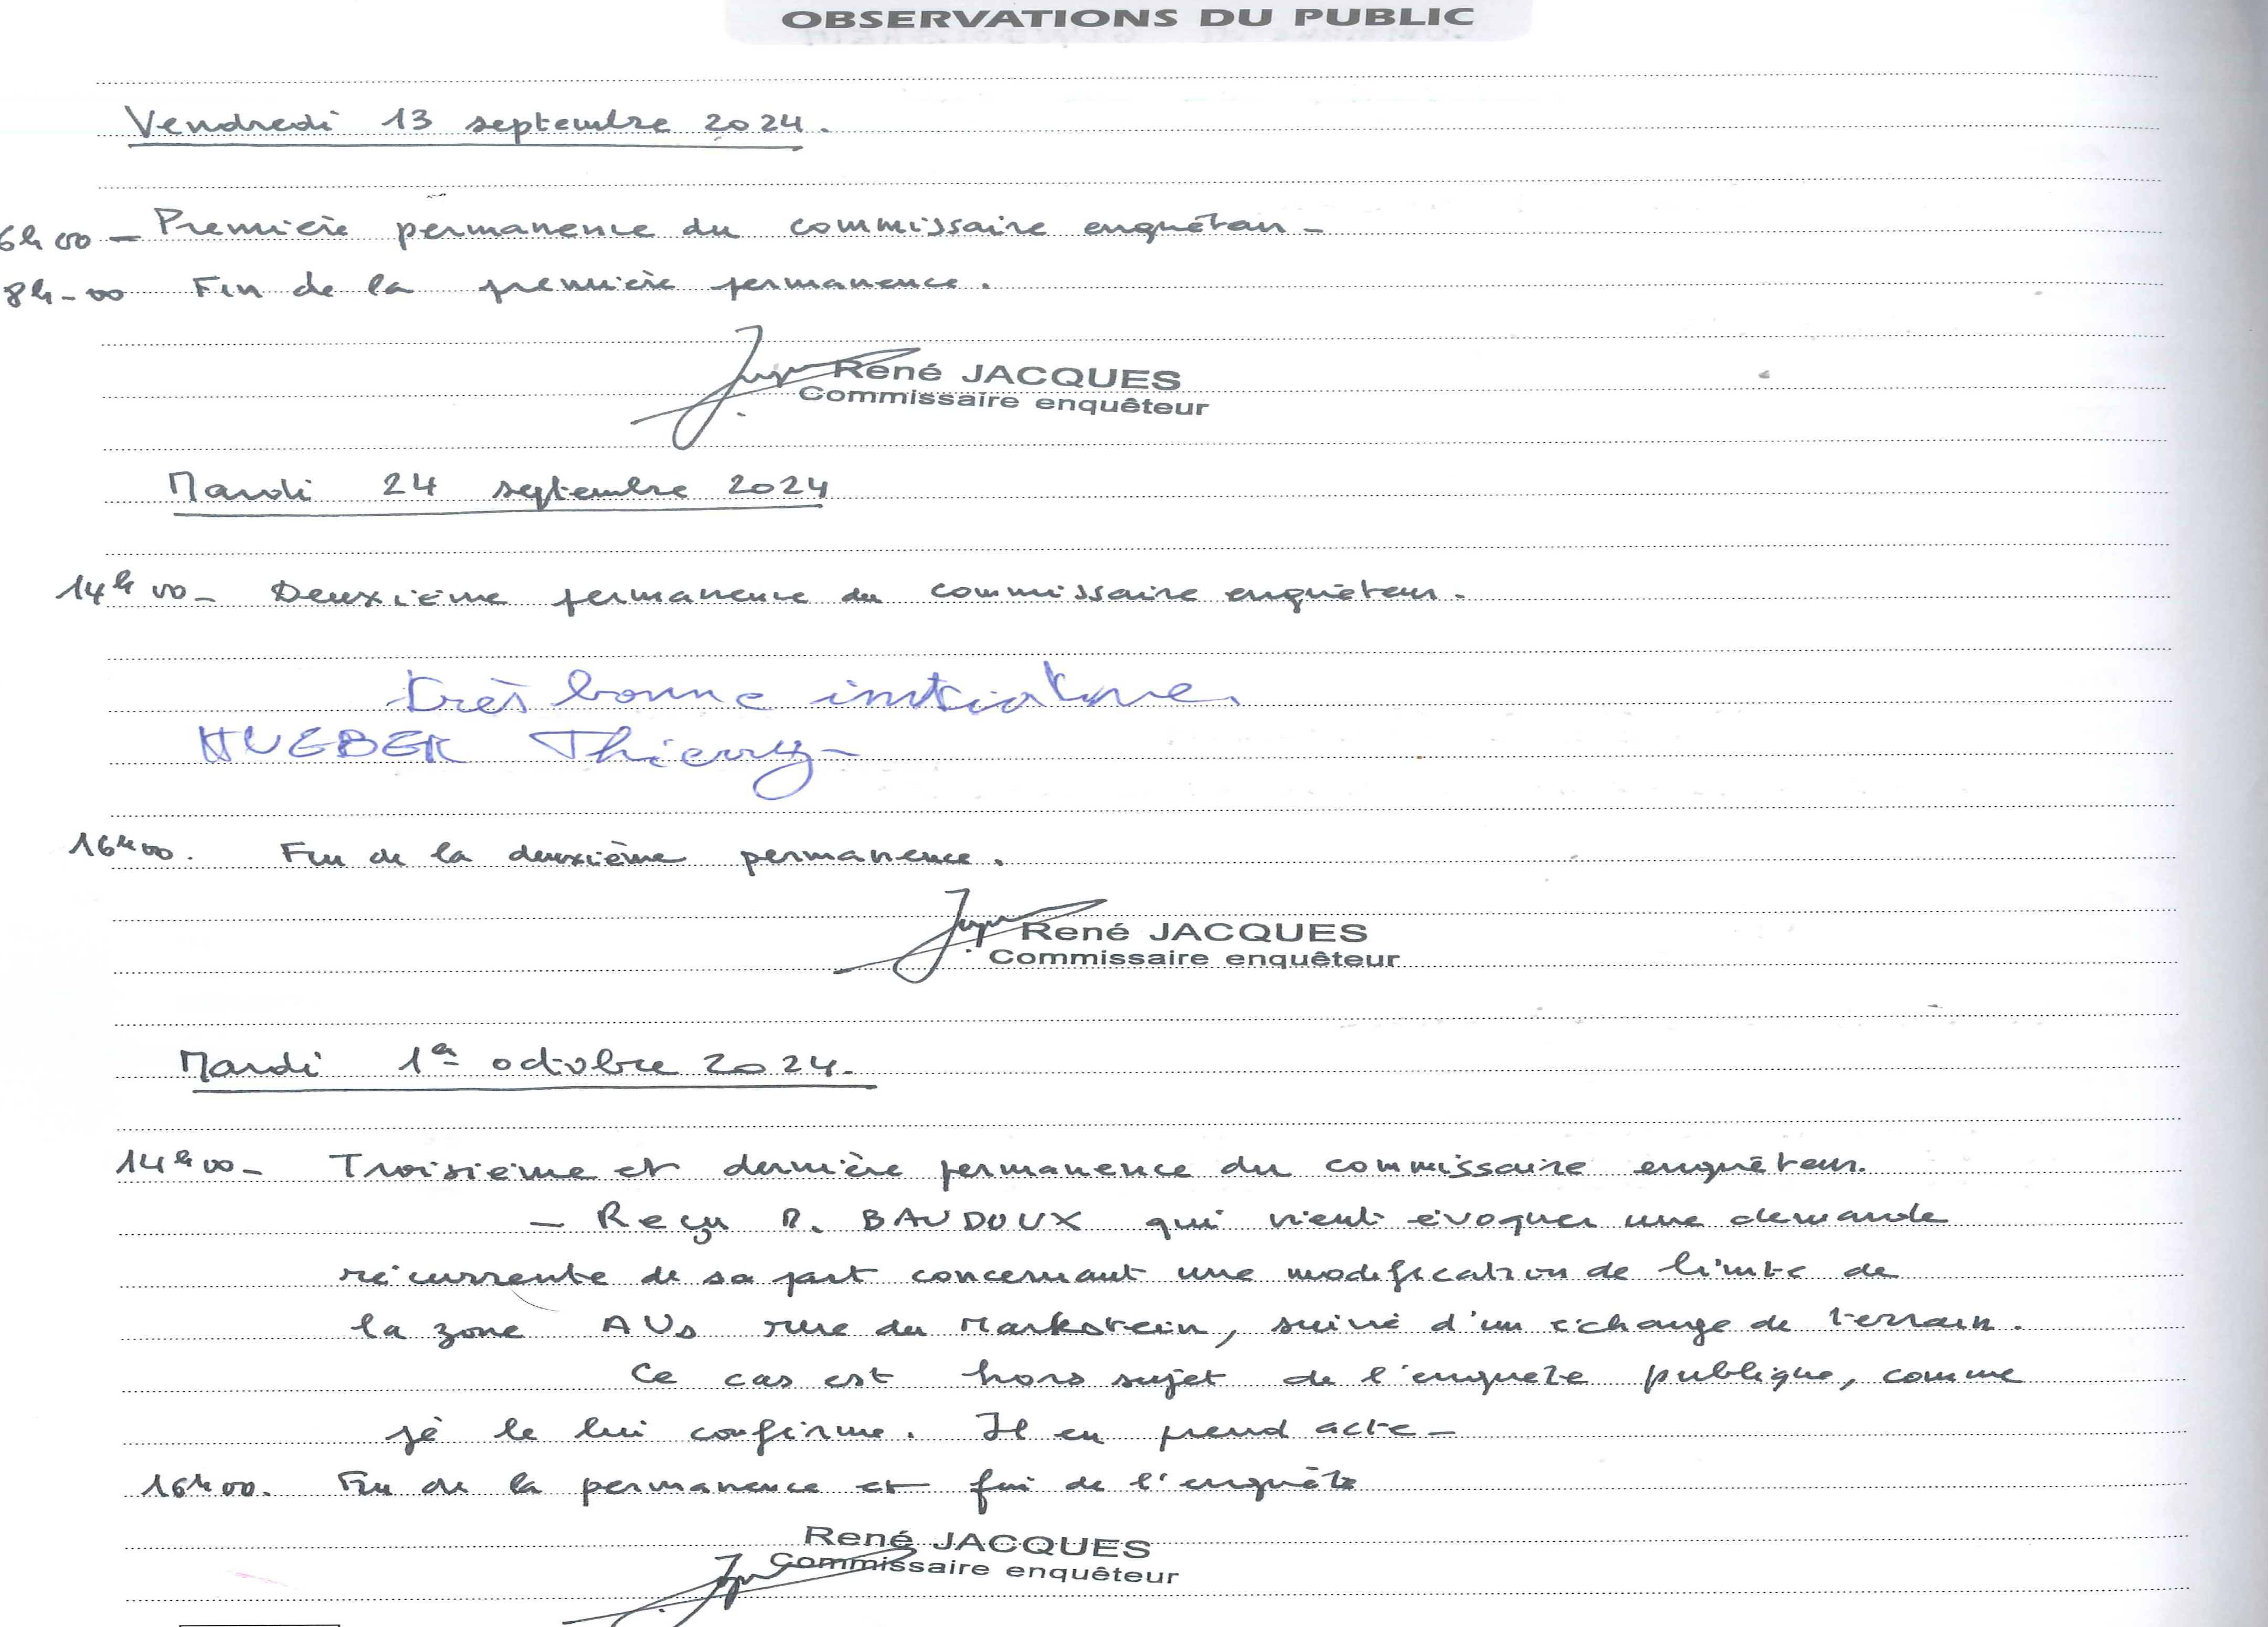 OBSERVATIONS DU PUBLIC
Vendredi 13 septembre 2024.
6h00 - Première permanence du commissaire enquêteur -
8h-00 Fin de la première permanence.
René JACQUES
Commissaire enquêteur
Mardi 24 septembre 2024
14h00 - Deuxième permanence du commissaire enquêteur.
très bonne initiative.
HUEBER Thierry
16h00. Fin de la deuxième permanence.
René JACQUES
Commissaire enquêteur
Mardi 1er octobre 2024.
14h00 - Troisième et dernière permanence du commissaire enquêteur.
- Reçu M. BAUDOUX qui vient évoquer une demande
récurrente de sa part concernant une modification de limite de
la zone AUs rue du Markstein, suivie d'un échange de terrain.
Ce cas est hors sujet de l'enquête publique, comme
je le lui confirme. Il en prend acte -
16h00. Fin de la permanence et fin de l'enquête
René JACQUES
Commissaire enquêteur